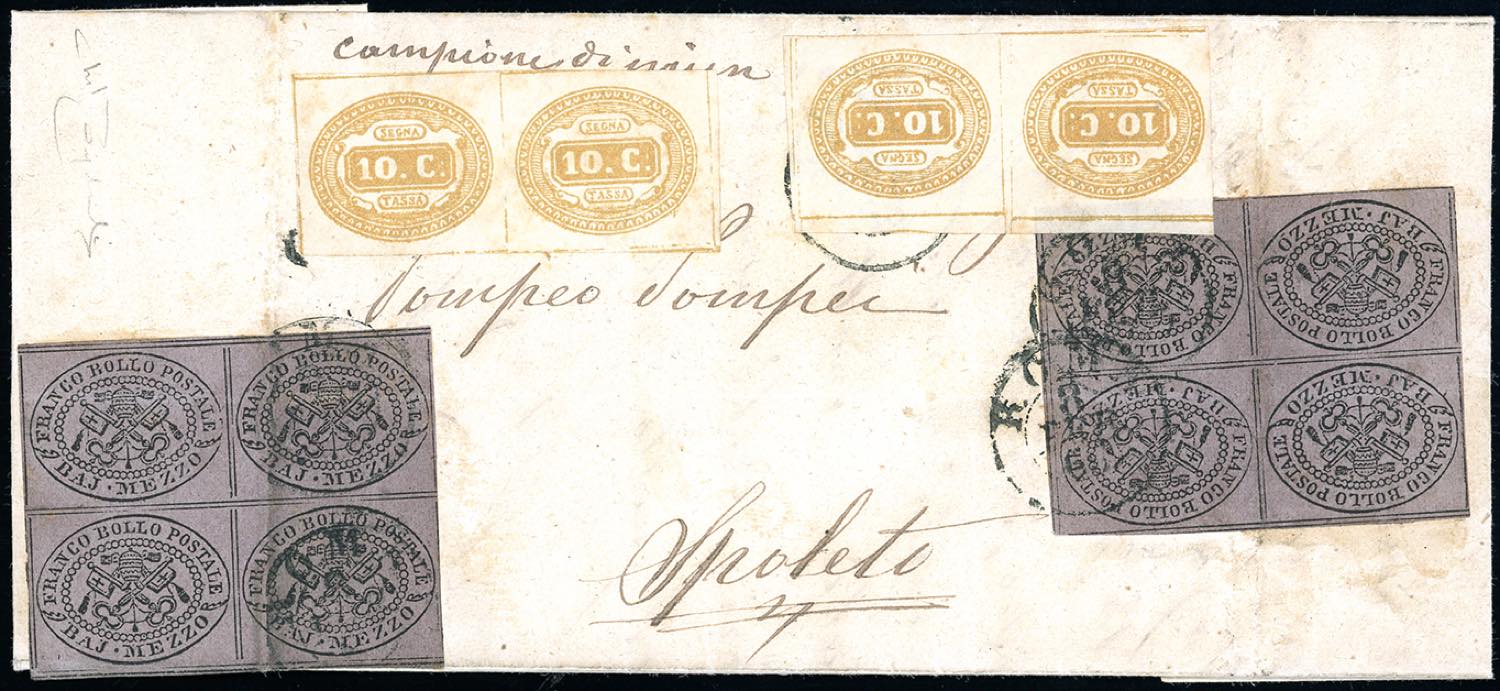 campione di
SEGNA
10. C.
TASSA
SEGNA
10. C.
TASSA
SEGNA
10. C.
TASSA
SEGNA
10. C.
TASSA
Pompeo Pompei
Spoleto
FRANCO BOLLO POSTALE
BAJ · MEZZO
FRANCO BOLLO POSTALE
BAJ · MEZZO
FRANCO BOLLO POSTALE
BAJ · MEZZO
FRANCO BOLLO POSTALE
BAJ · MEZZO
FRANCO BOLLO POSTALE
BAJ · MEZZO
FRANCO BOLLO POSTALE
BAJ · MEZZO
FRANCO BOLLO POSTALE
BAJ · MEZZO
FRANCO BOLLO POSTALE
BAJ · MEZZO